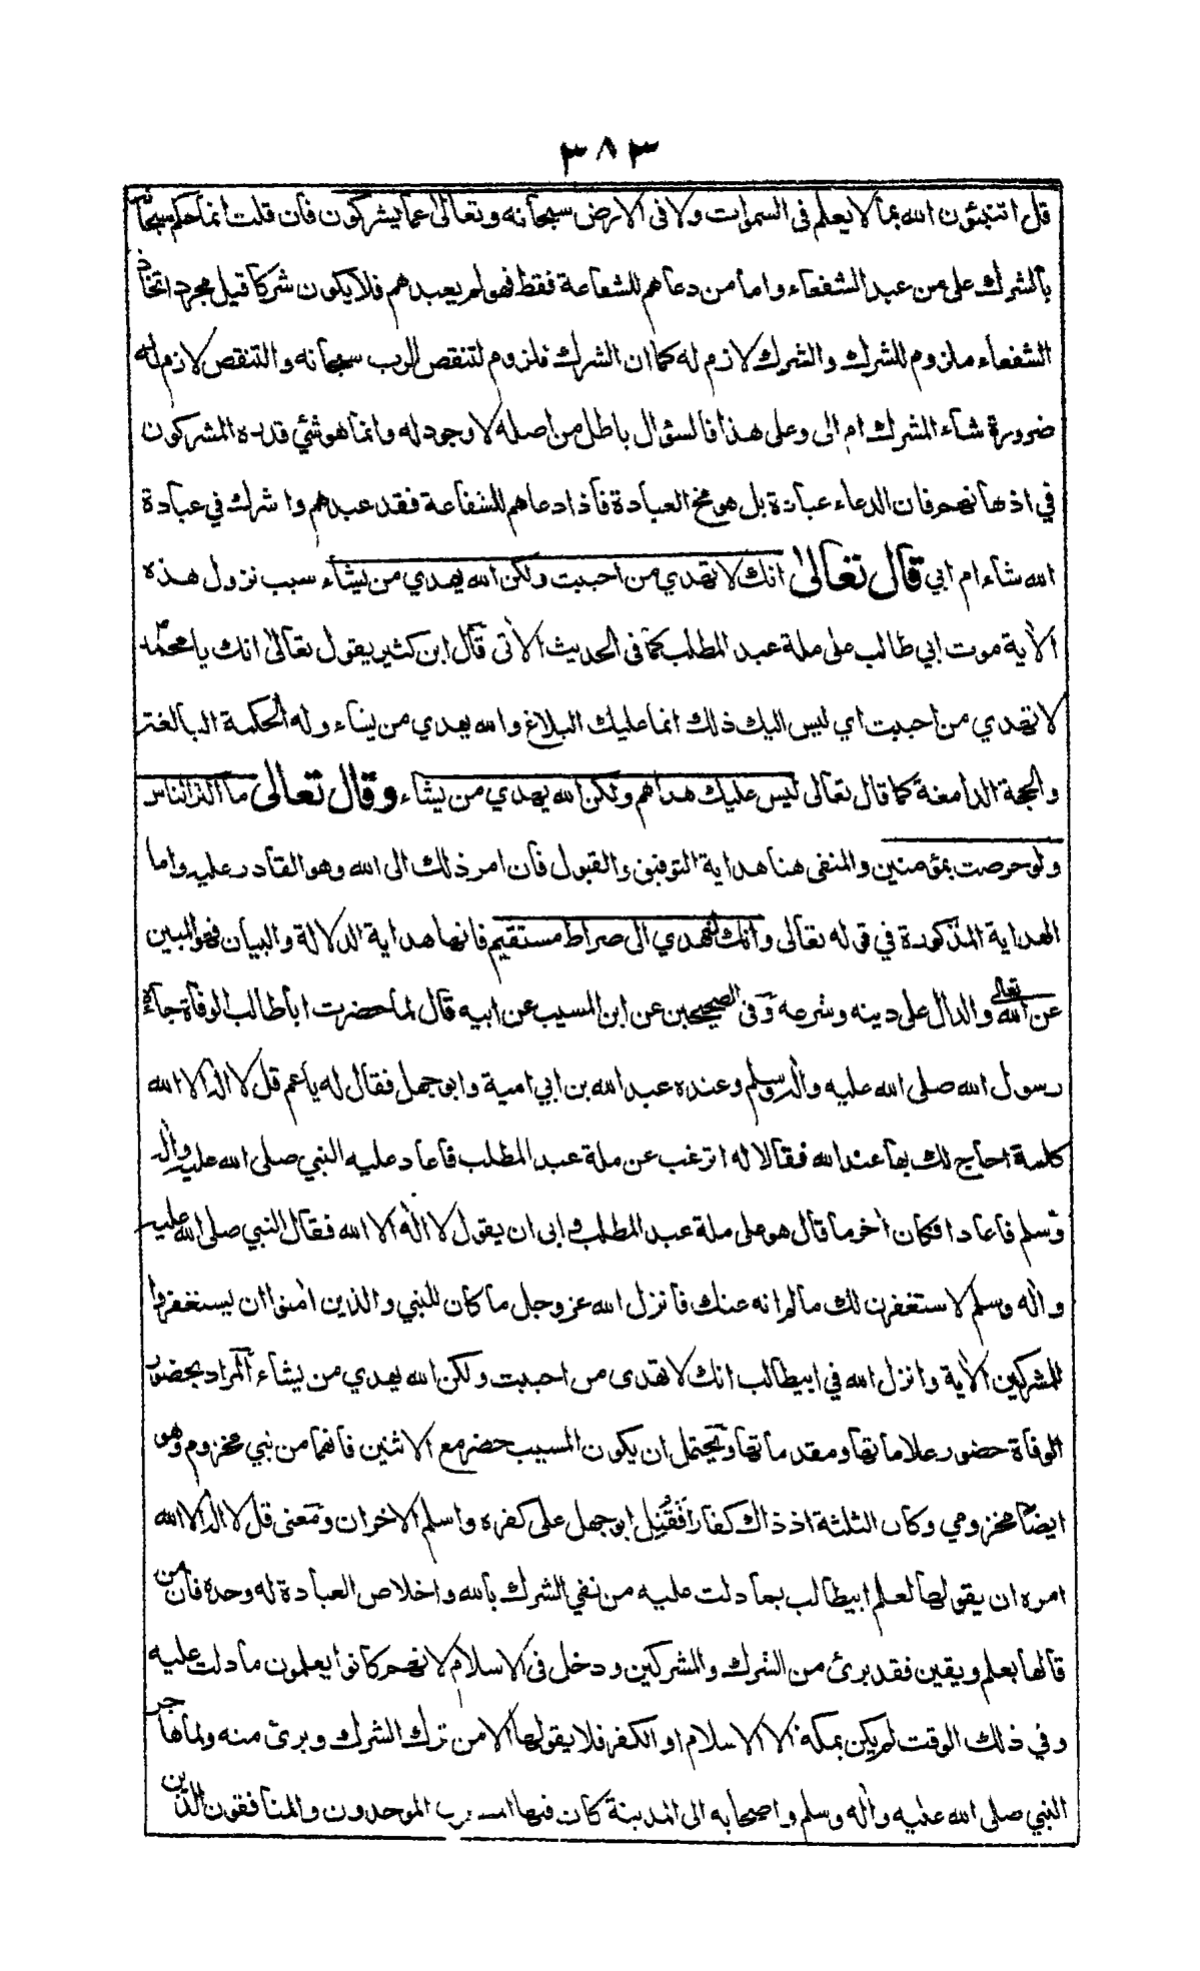 ٣٨٣
قل اتنبئون الله بما لا يعلم فى السموات ولا فى الارض سبحانه وتعالى عما يشركون فان قلت انما حكم سبحانه
بالشرك على من عبد الشفعاء واما من دعاهم للشفاعة فقط فهو لم يعبدهم فلا يكون شركا قيل مجرد اتخاذ
الشفعاء ملزوم للشرك والشرك لازم له كما ان الشرك ملزوم لتنقص الرب سبحانه والتنقص لازم له
ضرورة شاء المشرك ام ابى وعلى هذا فالسؤال باطل من اصله لا وجود له وانما هو شئ قدره المشركون
في اذهانهم فان الدعاء عبادة بل هو مخ العبادة فاذا دعاهم للشفاعة فقد عبدهم واشرك في عبادة
الله شاء ام ابي قال تعالى انك لا تهدي من احببت ولكن الله يهدي من يشاء سبب نزول هذه
الأية موت ابي طالب على ملة عبد المطلب كما فى الحديث الأتى قال ابن كثير يقول تعالى انك يا محمد
لا تهدي من احببت اي ليس اليك ذلك انما عليك البلاغ والله يهدي من يشاء وله الحكمة البالغة
والحجة الدامغة كما قال تعالى ليس عليك هداهم ولكن الله يهدي من يشاء وقال تعالى ما اكثر الناس
ولو حرصت بمؤمنين والمنفى هنا هداية التوفيق والقبول فان امر ذلك الى الله وهو القادر عليه واما
الهداية المذكورة في قوله تعالى وانك لتهدي الى صراط مستقيم فانها هداية الدلالة والبيان فهو المبين
عن الله تعالى والدال على دينه وشرعه وفى الصحيحين عن ابن المسيب عن ابيه قال لما حضرت ابا طالب الوفاة جاءه
رسول الله صلى الله عليه واله وسلم وعنده عبد الله بن ابي امية وابو جهل فقال له يا عم قل لا اله الا الله
كلمة احاج لك بها عند الله فقالا له اترغب عن ملة عبد المطلب فاعاد عليه النبي صلى الله عليه واله
وسلم فاعادا فكان أخر ما قال هو على ملة عبد المطلب وابى ان يقول لا اله الا الله فقال النبي صلى الله عليه
واله وسلم لاستغفرن لك ما لم انه عنك فانزل الله عز وجل ما كان للنبي والذين امنوا ان يستغفروا
للمشركين الأية وانزل الله في ابيطالب انك لا تهدى من احببت ولكن الله يهدي من يشاء المراد بحضور
الوفاة حضور علاماتها ومقدماتها ويحتمل ان يكون المسيب حضر مع الاثنين فانهما من بني مخزوم وهو
ايضا مخزومي وكان الثلثة اذ ذاك كفارا فقتل ابو جهل على كفره واسلم الاخران ومعنى قل لا اله الا الله
امره ان يقولها لعلم ابيطالب بما دلت عليه من نفي الشرك بالله واخلاص العبادة له وحده فان من
قالها بعلم ويقين فقد برئ من الشرك والمشركين ودخل فى الاسلام لانهم كانوا يعلمون ما دلت عليه
وفي ذلك الوقت لم يكن بمكة الا الاسلام او الكفر فلا يقولها الا من ترك الشرك وبرئ منه ولما هاجر
النبي صلى الله عليه واله وسلم واصحابه الى المدينة كان فيها الموحدون والمنافقون الذين